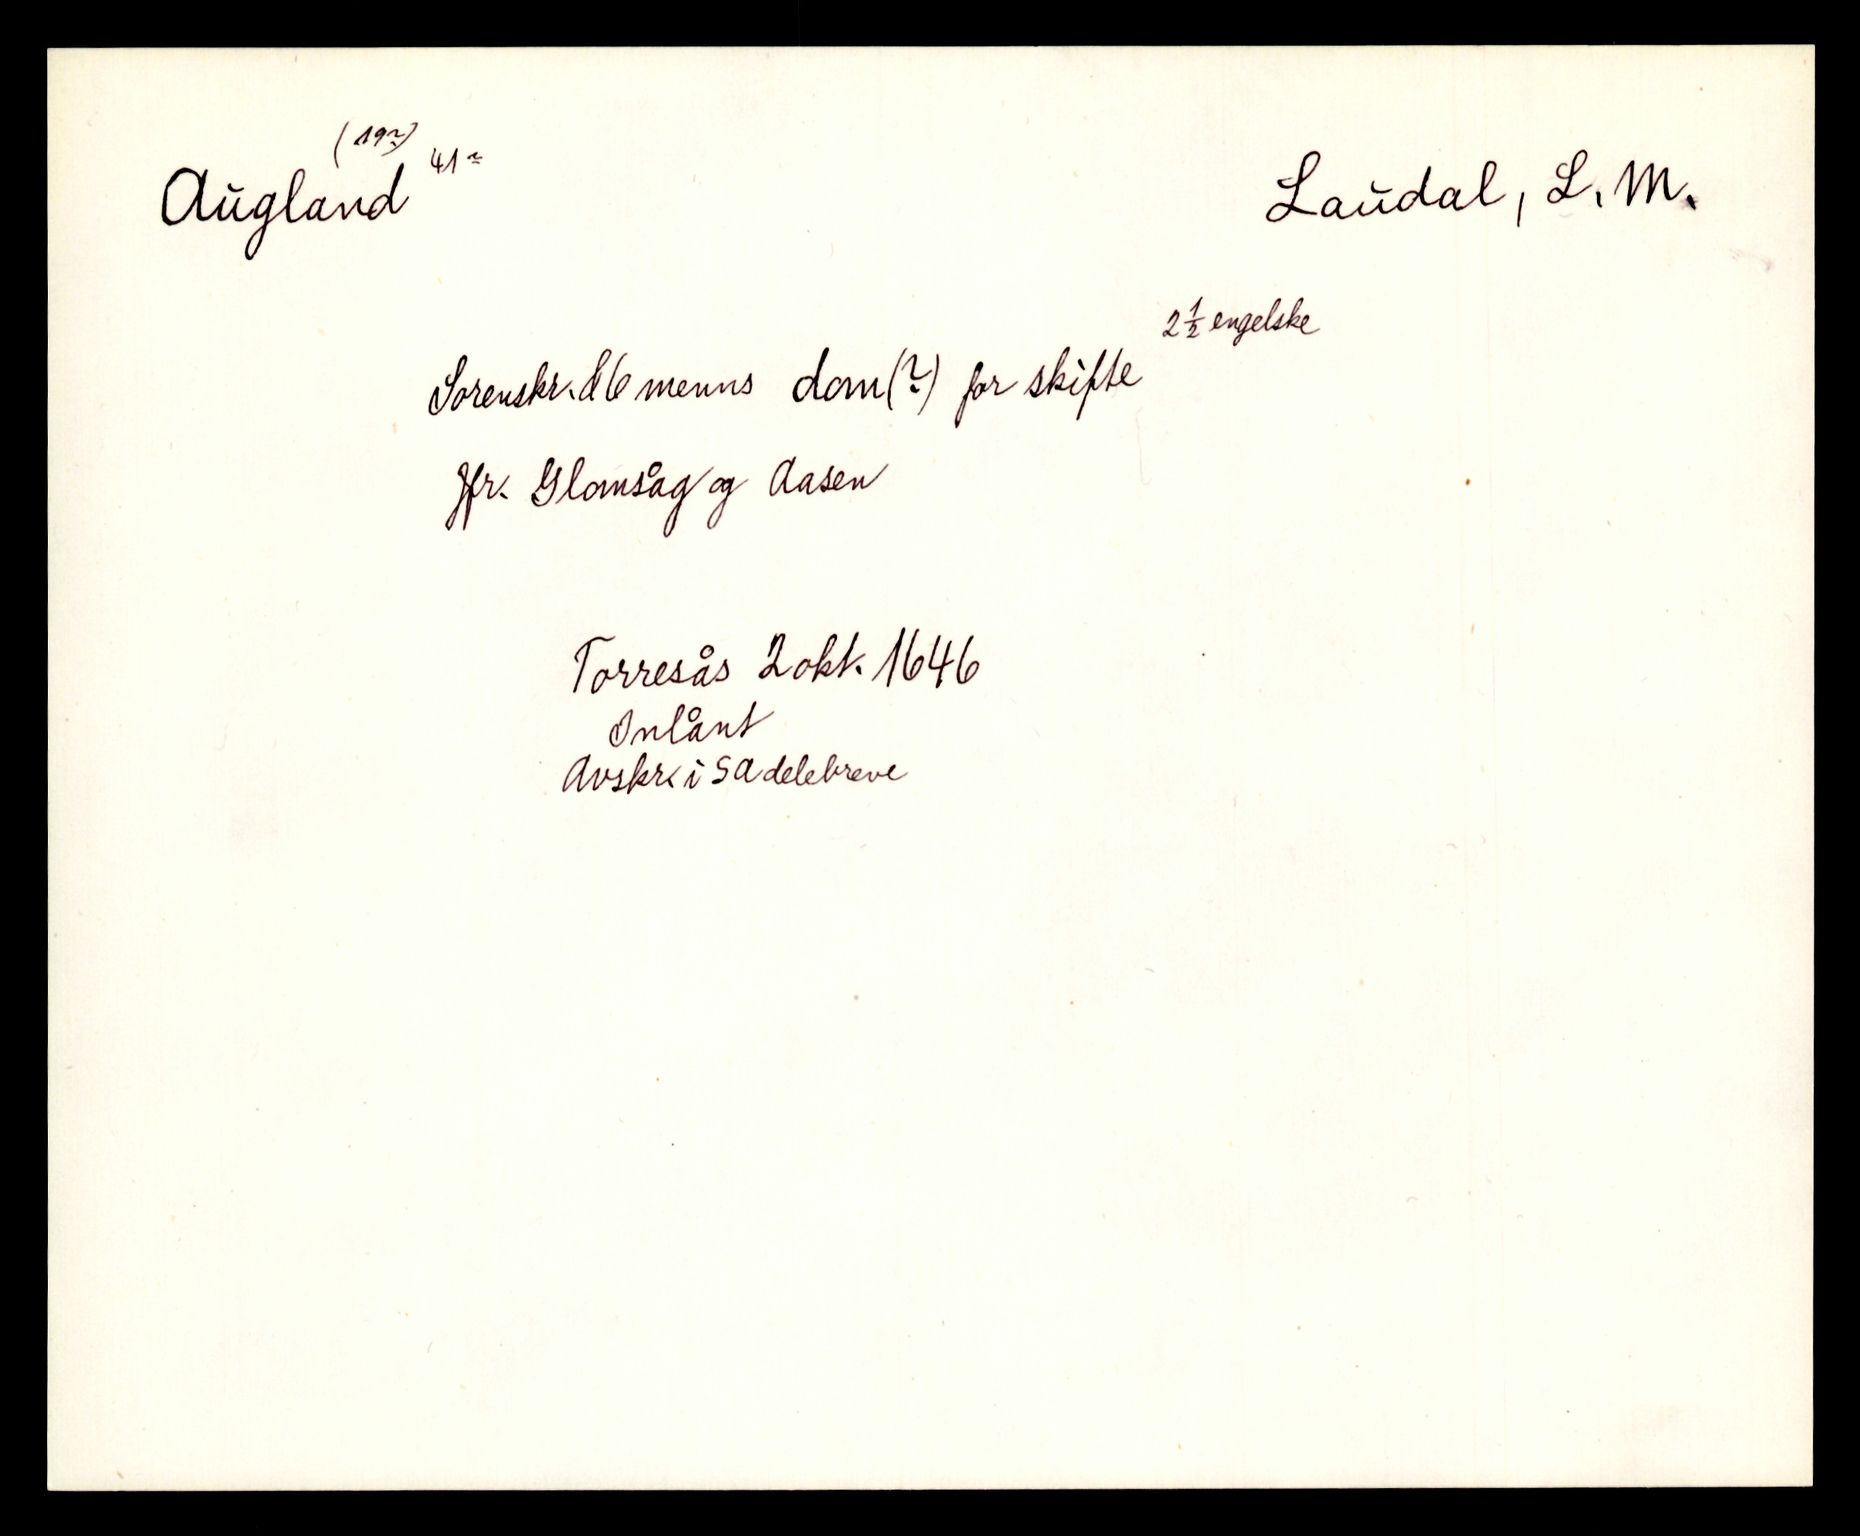 (19?)
Augland 41?
Laudal, L. M.
2 1/2 engelske
Sorenskr. & 6 menns dom (?) for skifte
Jfr. Glomsåg og Aasen
Torresås 2 okt. 1646
Innlånt
Avskr. i SA delebreve